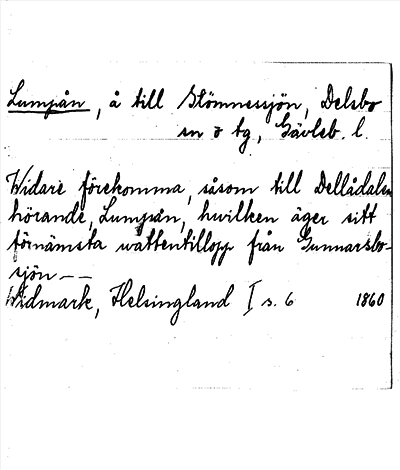 Lumpån, å till Stömnessjön, Delsbo
sn o tg, Gävleb. l.
Widare förekomma, såsom till Dellådalen
hörande, Lumpån, hwilken äger sitt
förnämsta wattentillopp från Gunnarsbo-
sjön--
Widmark, Helsingland I s. 6 1860